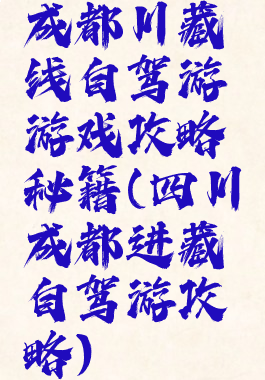 成都川藏
线自驾游
游戏攻略
秘籍(四川
成都进藏
自驾游攻
略)